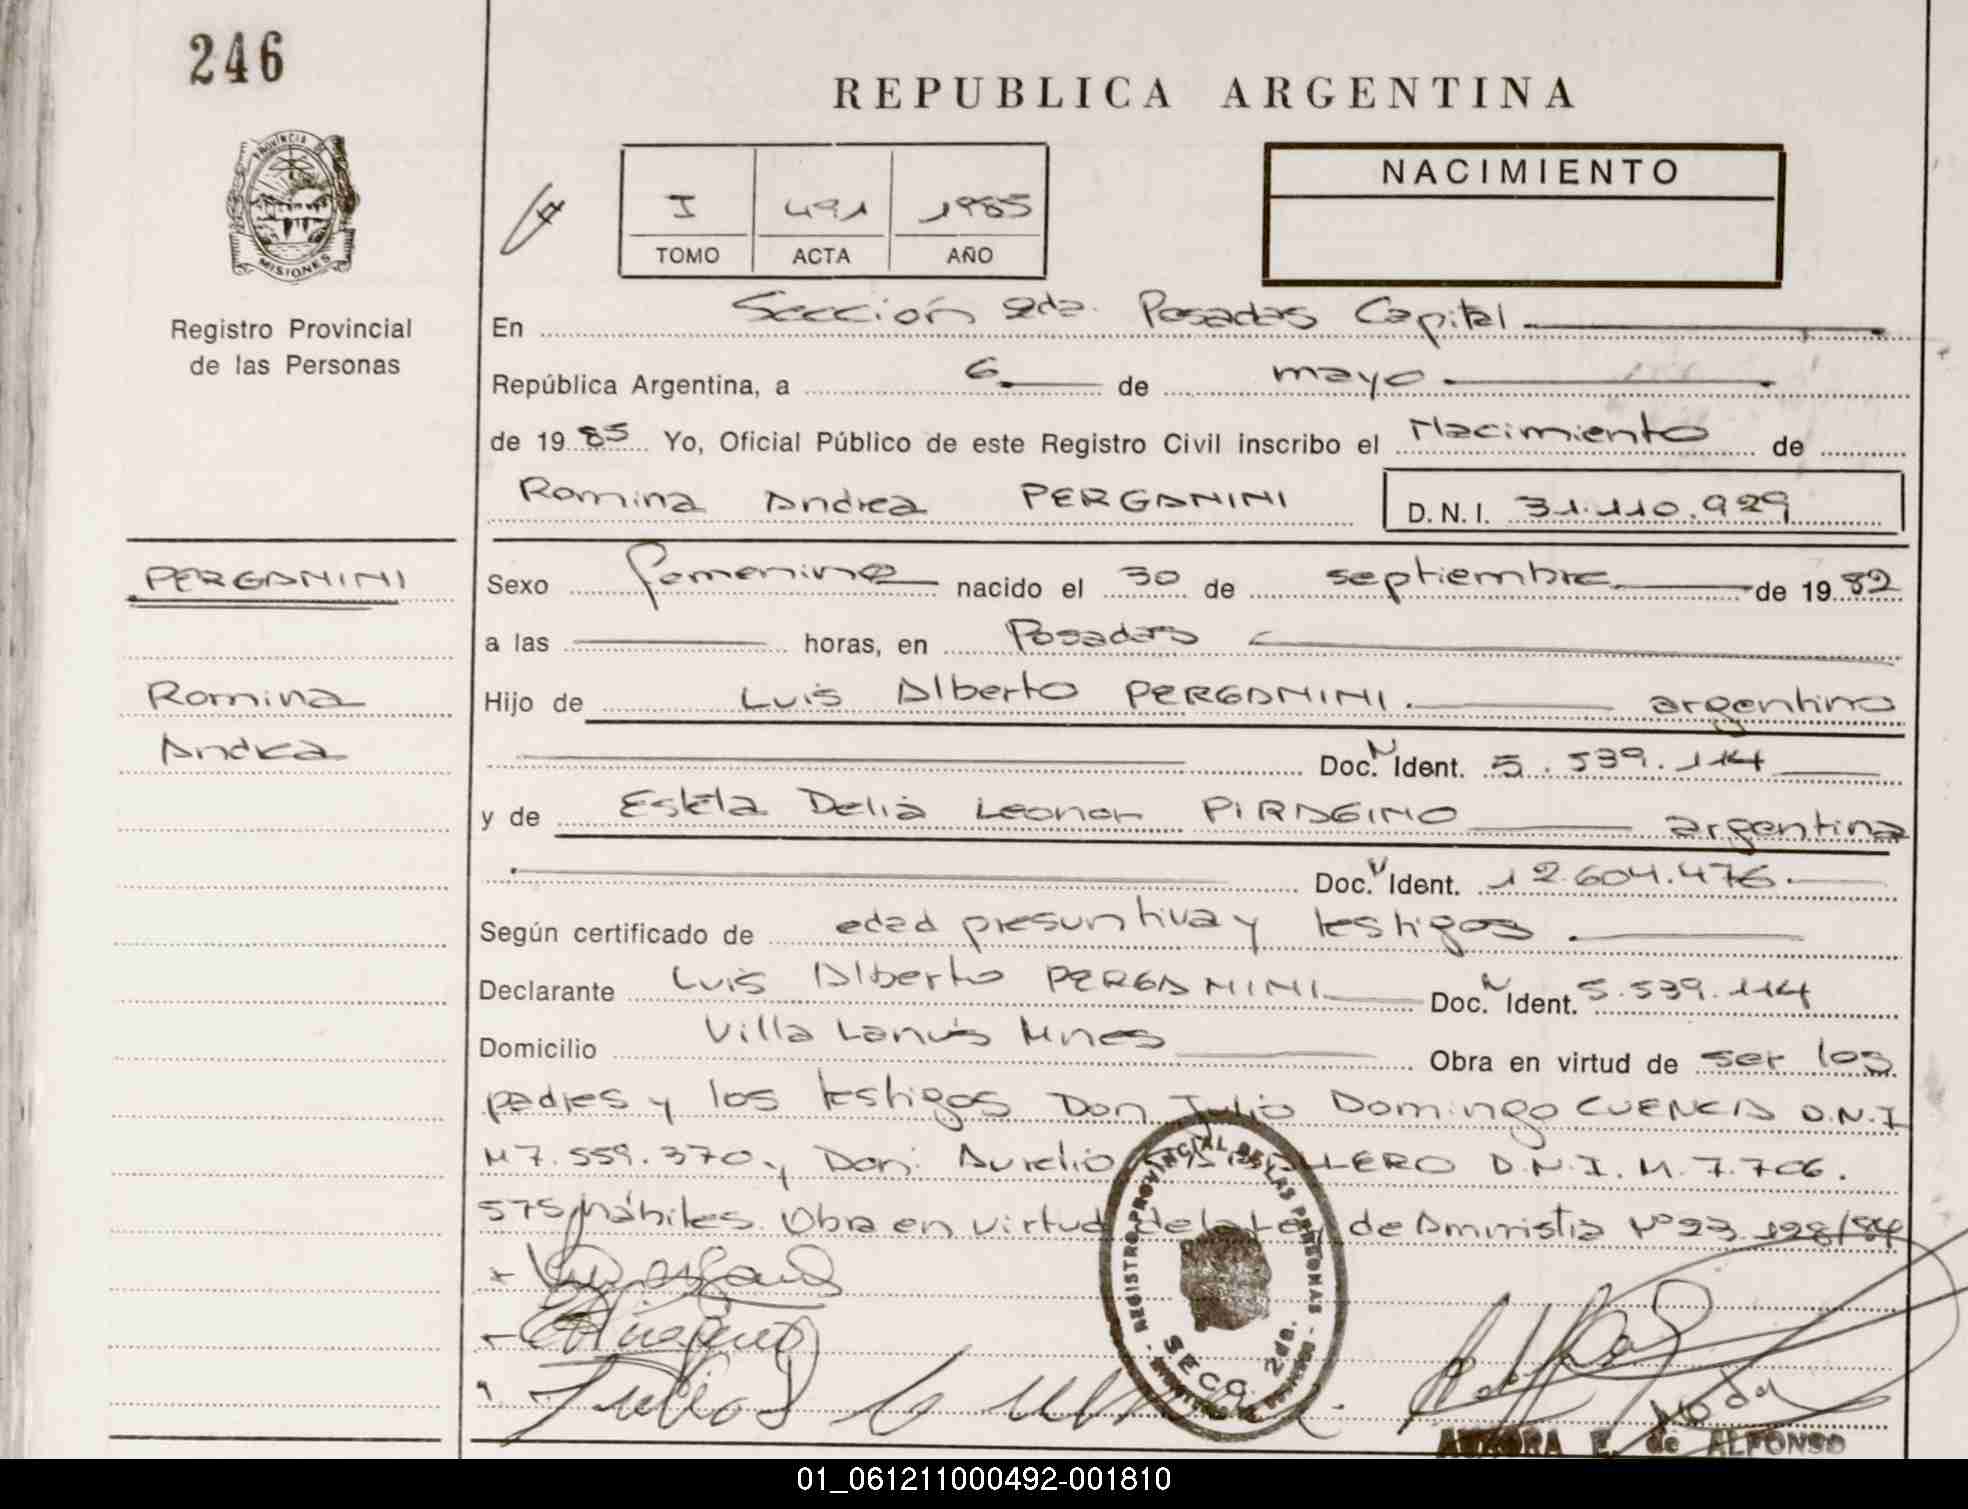 246
REPUBLICA ARGENTINA
PROVINCIA DE
MISIONES
Registro Provincial
de las Personas
I 491 1985
TOMO ACTA AÑO
NACIMIENTO
En Sección 2da. Posadas Capital
República Argentina, a 6 de mayo
de 1985 Yo, Oficial Público de este Registro Civil inscribo el Nacimiento de
Romina Andrea PERGANINI D.N.I. 31.110.929
PERGANINI
Romina
Andrea
Sexo femenino nacido el 30 de septiembre de 1982
a las horas, en Posadas
Hijo de Luis Alberto PERGANINI. argentino
Doc. N Ident. 5.539.114
y de Estela Delia Leonor PIRAGINO argentina
Doc. N Ident. 12.604.476.
Según certificado de edad presuntiva y testigos.
Declarante Luis Alberto PERGANINI Doc. N Ident. 5.539.114
Domicilio Villa Lanús Mnes Obra en virtud de ser los
padres y los testigos Don Julio Domingo CUENCA D.N.I
M 7.559.370 y Don. Aurelio D.N.I. M. 7.706.
575 hábiles. Obra en virtud de la Ley de Amnistia Nº 23.128/84
REGISTRO PROVINCIAL DE LAS PERSONAS
SECC. 2da.
AURORA E. de ALFONSO
01_061211000492-001810